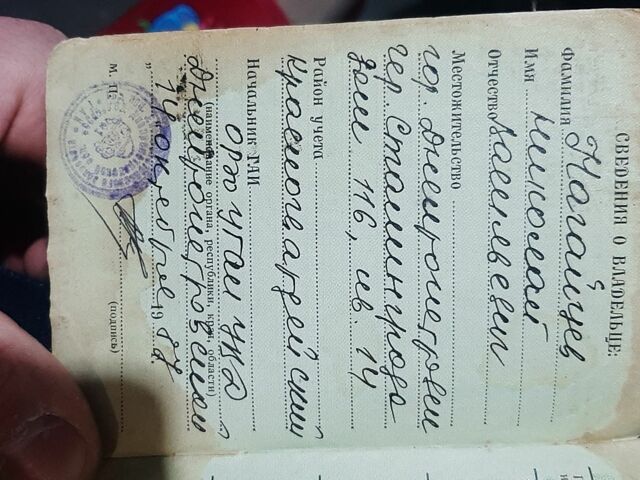 СВЕДЕНИЯ О ВЛАДЕЛЬЦЕ:
Фамилия Нагайцев
Имя Николай
Отчество Васильевич
Местожительство
гор. Днепропетровск
гер. Сталинграда
дом 116, кв. 14
Район учета
Красногвардейский
Начальник ГАИ
ОРЭО УГАИ УВД
Днепропетровской
(наименование органа, республики, края, области)
"14" октября 1988 г.
М. П.
(подпись)